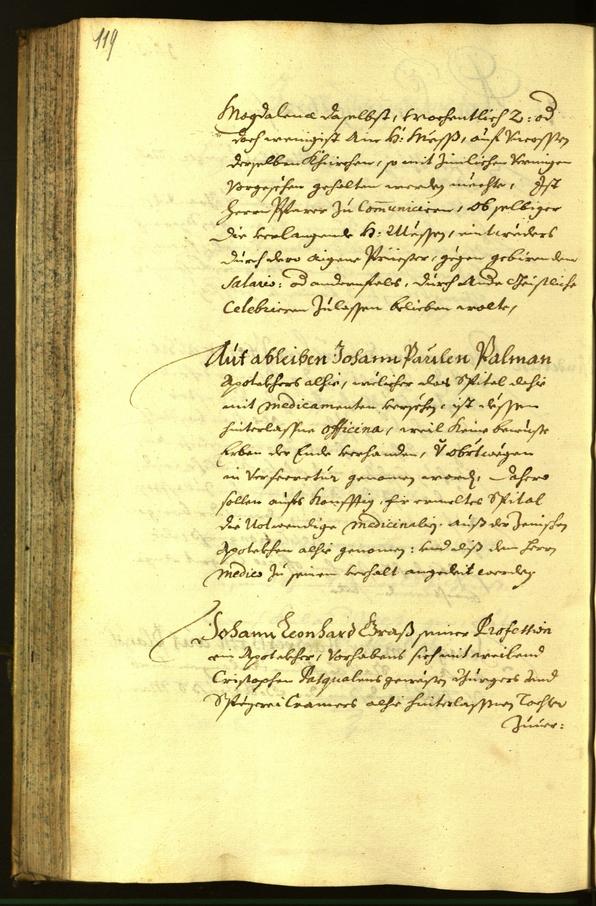 119
Magdalena daselbst, wochentlich 2: od
doch wenigist ain H: Mess, auf
derselben Khirchen, so mit
Vorgesehen gehalten werden mechte, Ist
Herrn Pfarer zu Communiciern, ob selbiger
die verlangende H: Messen, eintweders
durch dero aigene Priester, gegen gebirendem
Salario: od andernfals, durch Ande Geistliche
Celebriern zulassen belieben wolte,
Auf ableiben Johann Paulen Palman
Apotekhers alhie, welicher das Spital dahie
mit medicamenten versehen, ist dessen
hinterlassne officina, weil keine bewuste
Erben der Ende verhanden, V obrigwegen
in Verseeretur genomen word, dahero
sollen aufs Konfftig, fir ermeltes Spital
die Notwendige medicinalien auß der
Apotekhen alhie genomen: und diß dem Herrn
Medico zu seinem verhalt angedeit werden
Johann Leonhard Graß seiner Profession
ein Apotekher, Vorhabens sich mit weiland
Cristophen Pasqualens gewesten Burgers und
Spezerei Cramers alhie hinterlassnen Tochter
Zuver: